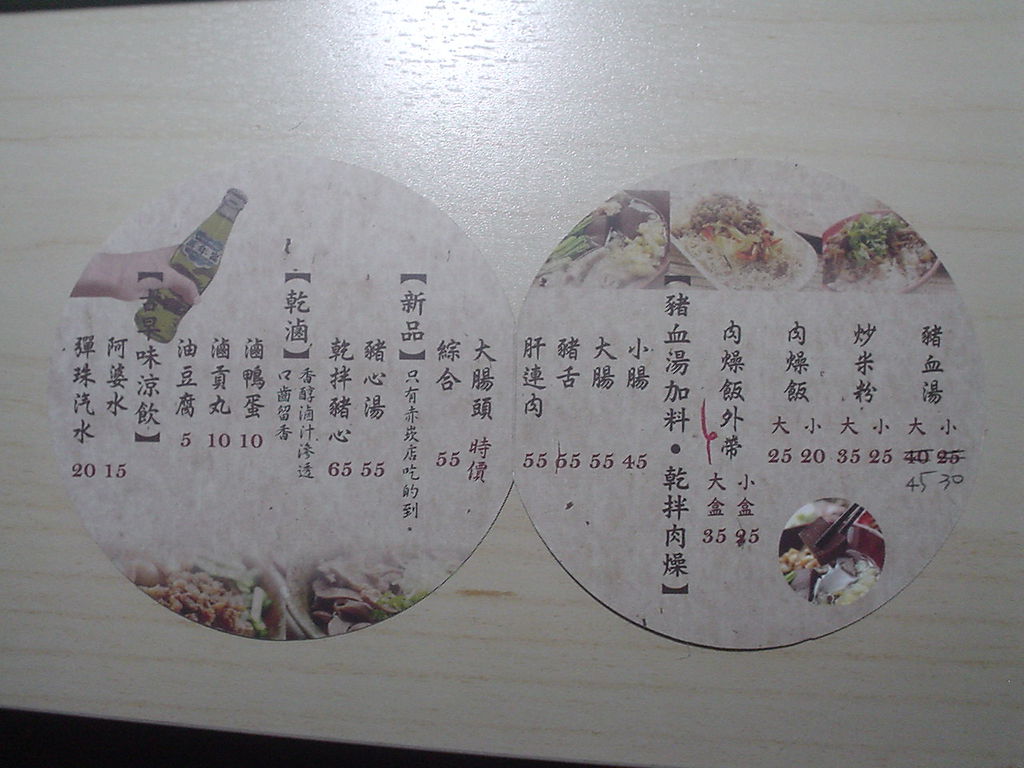 豬血湯 大 小 40 25 45 30
炒米粉 大 小 35 25
肉燥飯 大 小 25 20
肉燥飯外帶 大盒 小盒 35 25
【豬血湯加料•乾拌肉燥】
小腸 45
大腸 55
豬舌 55
肝連肉 55
大腸頭 時價
綜合 55
【新品】只有赤崁店吃的到。
豬心湯 55
乾拌豬心 65
【乾滷】香醇滷汁滲透
口齒留香
滷鴨蛋 10
滷貢丸 10
油豆腐 5
【古早味涼飲】
阿婆水 15
彈珠汽水 20